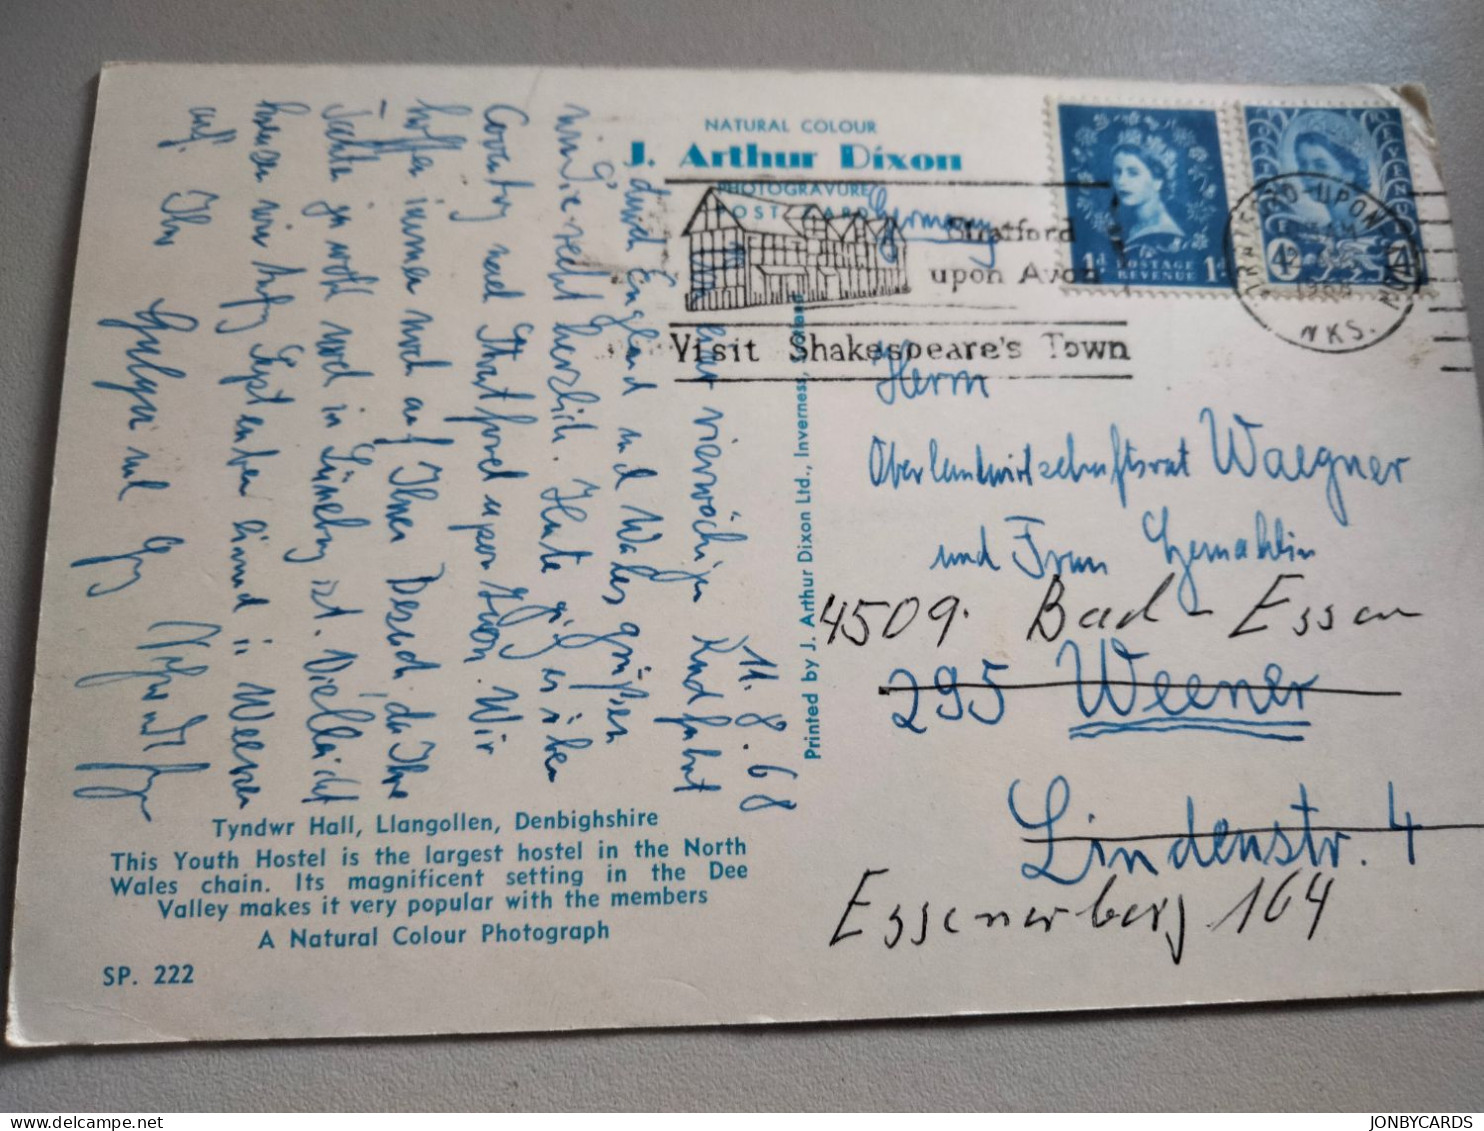 NATURAL COLOUR
J. Arthur Dixon
PHOTOGRAVURE
POST CARD
Germany
Stratford
upon Avon
Visit Shakespeare's Town
1d POSTAGE 1d
REVENUE
4d 4d
STRATFORD UPON AVON
1968
WKS.
11.8.68
hier vierwöchigen Rundfahrt
durch England und Wales grüßen
wir Sie recht herzlich. Heute geht es über
Coventry nach Stratford upon Avon. Wir
hoffen immer noch auf Ihren Besuch, da Ihre
Tochter ja wohl noch in Lüneburg ist. Vielleicht
wir Anfang September einmal in Weener
auf. Ihre
und
Herrn
Oberlandwirtschaftsrat Waegner
und Frau Gemahlin
4509. Bad-Essen
295 Weener
Lindenstr. 4
Essenerberg 164
Printed by J. Arthur Dixon Ltd., Inverness, Scotland
Tyndwr Hall, Llangollen, Denbighshire
This Youth Hostel is the largest hostel in the North
Wales chain. Its magnificent setting in the Dee
Valley makes it very popular with the members
A Natural Colour Photograph
SP. 222
JONBYCARDS